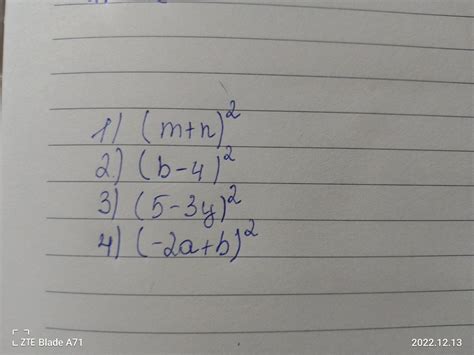 1) (m+n)²
2) (b-4)²
3) (5-3y)²
4) (-2a+b)²
ZTE Blade A71
2022.12.13